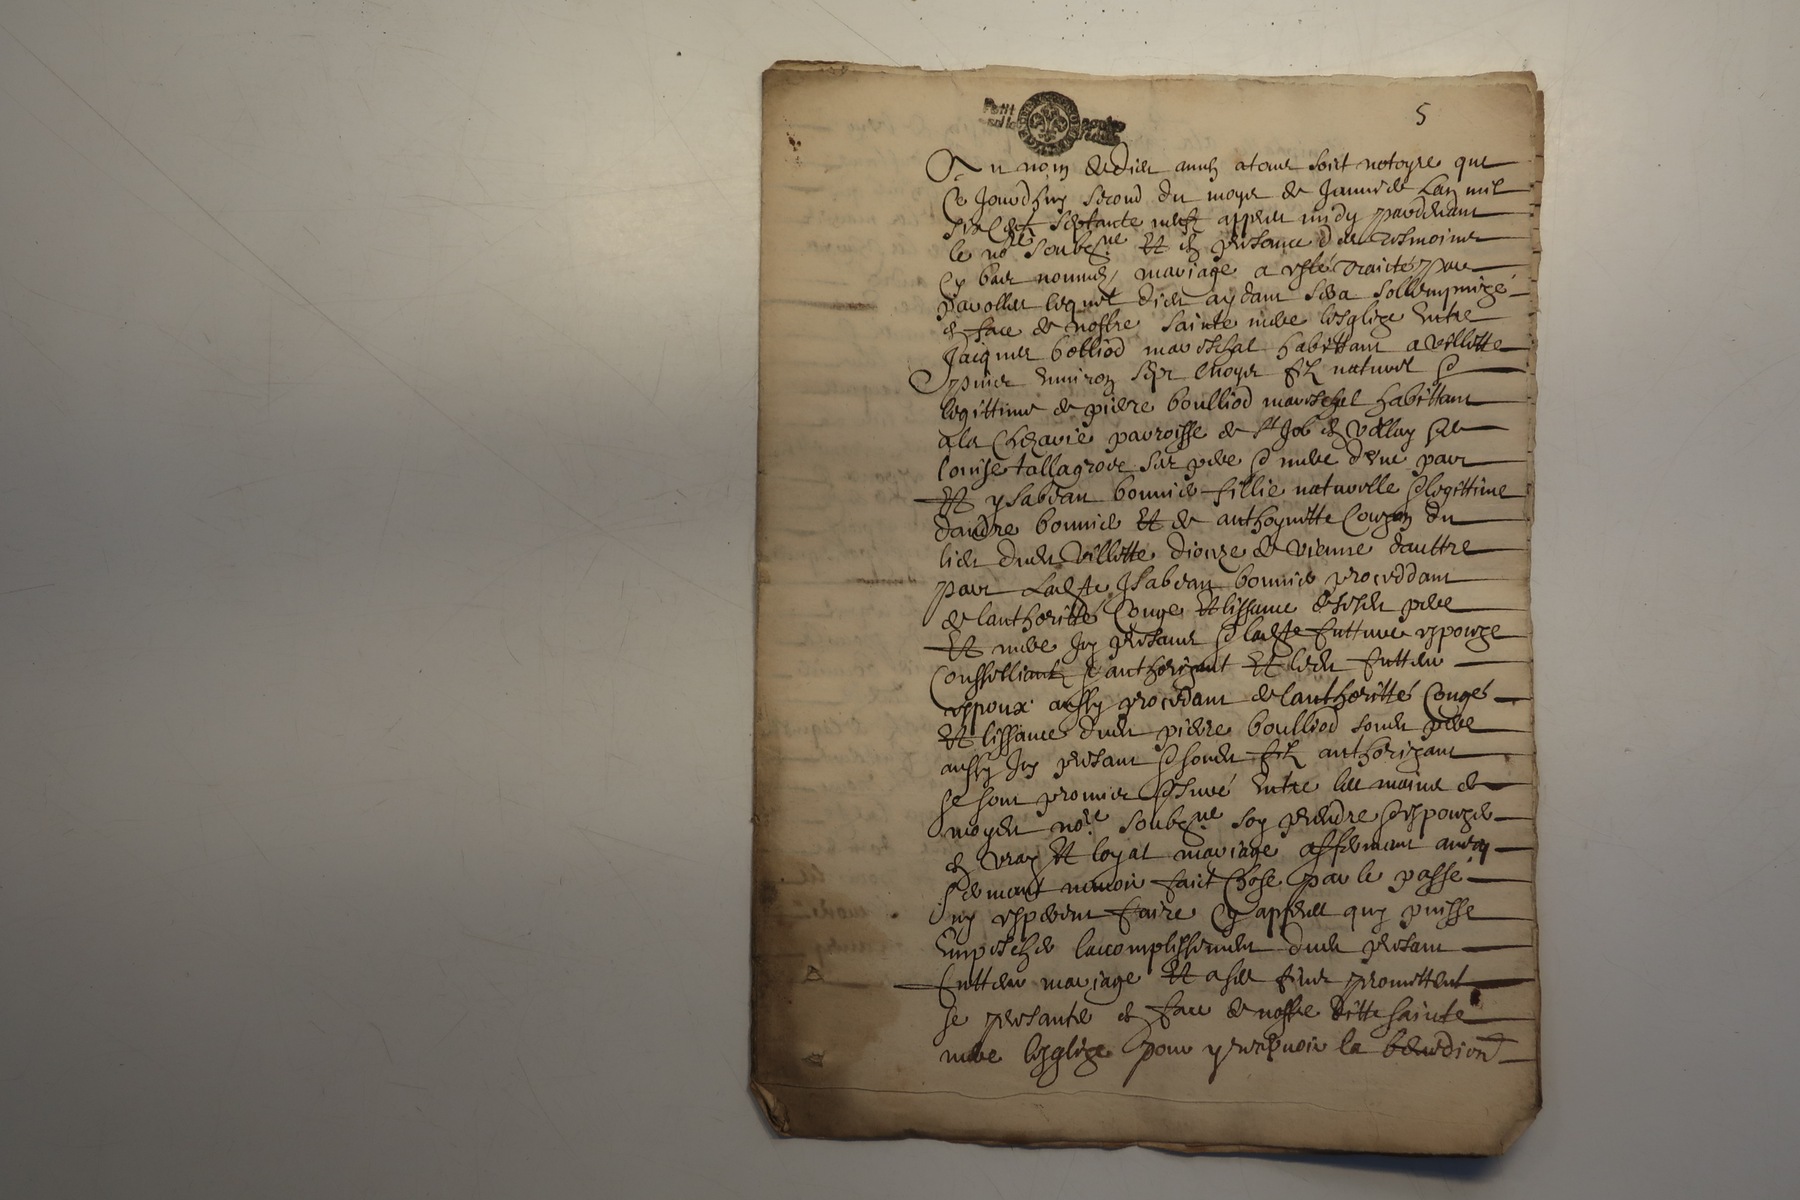 Petit
5
Au nom de dieu amen a tous soict notoyre que
Ce Jourdhuy second du moys de Janvier Lan mil
six Cent septante neuf appres midy pardevant
le no.re soubz.ne Et en presance des tesmoins
Cy bas nommes mariage a esté traicté par
parolles lequel dieu aydant sera sollempnizé
en face de nostre sainte mere lesglize Entre
Jacques bolliod mareschal habittant a villette
puis Environ sept moys filz naturel &
legittime de pierre boulliod mareschal habittant
a la paroisse de st en vellay & de
louise tallagrove ses pere & mere d'une part
Et ysabeau bonnier fillie naturelle & legittime
dandre bonnier Et de anthoynette du
lieu dudit villette dioceze de vienne dauttre
part Ladite Isabeau bonnier proceddant
de lauthoritté Congé Et lissance de sesdits pere
Et mere Icy presants & ladite futture espouze
Conseilliantz & authorizant Et ledit futteur
espoux aussy proceddant de lauthoritté Congé
Et lissance dudit pierre boulliod sondit pere
aussy Icy presant & sondit filz authorizant
se sont promis & juré Entre les mains de
moydit no.re soubz.ne soy prendre & espouzer
en vray Et loyal mariage affirmant
serment navoir faict Chose par le passé
ny esperent faire Cy appres quy puisse
Empescher laccomplissement dudit presant
futteur mariage Et a ses fins promettent
se presanter en face de nostre ditte sainte
mere lesglize pour y recepvoir la benediction